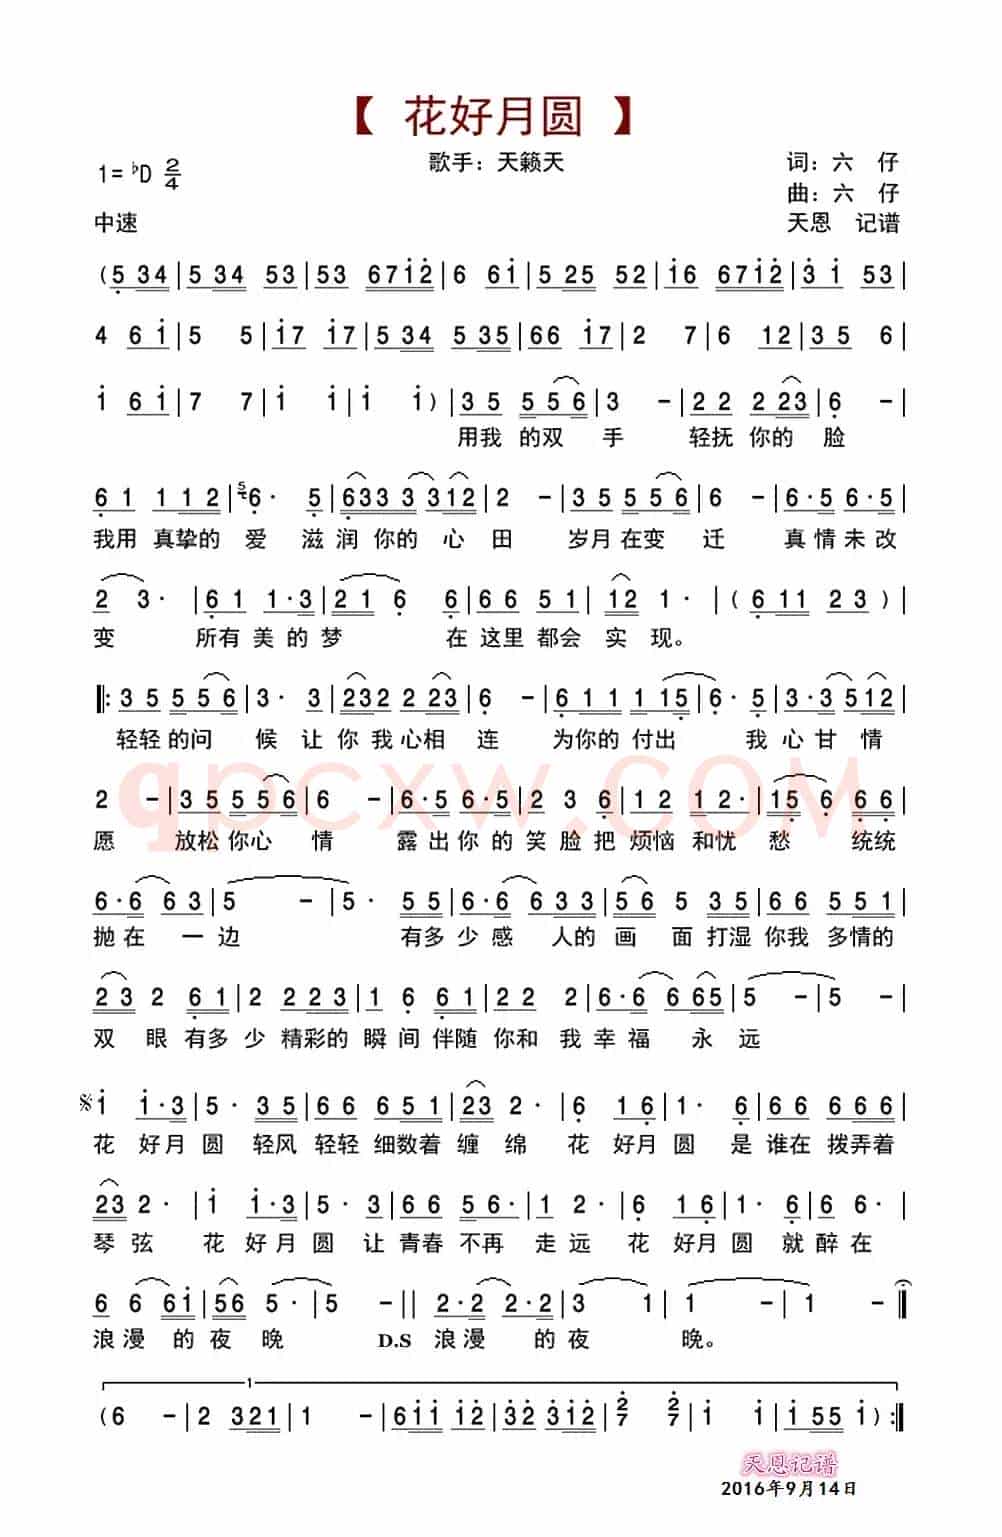 【 花好月圆 】
1= ♭D 2/4 歌手：天籁天 词：六 仔
曲：六 仔
中速 天恩 记谱
(5 34|534 53|53 6712|6 61|5 25 52|16 6712|3 1 53|
4 61|5 5|17 17|534 535|66 17|2 7|6 12|35 6|
1 61|7 7|1 1|1 1)|35 556|3 -|22 223|6 -|
用我 的双 手 轻抚 你的 脸
61 112|56· 5|633 3312|2 -|35 556|6 -|6·5 6·5|
我用 真挚的 爱 滋润 你的 心 田 岁月 在变 迁 真情未改
2 3·|61 1·3|21 6 6|66 51|12 1·|(611 23)|
变 所有 美的梦 在 这里 都会 实 现。
‖:35 556|3· 3|232 223|6 -|611 115|6· 5|3·3 512|
轻轻的问 候 让 你我心相 连 为你的 付出 我 心甘 情
2 -|35 556|6 -|6·5 6·5|2 3 6|12 12·|15 6 66|
愿 放松你心 情 露出你的笑脸把 烦恼 和忧 愁 统统
6·6 63|5 -|5· 55|6·6 633|66 5 35|66 551|
抛在 一边 有多少感 人的 画 面 打湿 你我 多情的
23 2 61|2 223|1 6 61|22 2|6·6 665|5 -|5
双 眼 有多少 精彩的 瞬间 伴随 你和 我 幸福 永 远
𝄋1 1·3|5· 35|66 655|23 2·|6 16|1· 6|66 566|
花 好月 圆 轻风 轻轻 细数着 缠 绵 花 好月 圆 是 谁在 拨弄着
23 2·|1 1·3|5· 3|66 56|1 2·|6 16|1· 2|2 6·|
琴弦 花 好月 圆 让 青春 不再 走远 花 好月 圆 就 醉在
6 6 61|56 5·|5 -‖2·2 2·2|3 1|1 -|1 -‖
浪漫 的夜 晚 D.S 浪漫 的夜 晚。
1
(6 -|2 321|1 -|611 12|32 312|2/7 2/7|1 1|155 1):‖
qpcxw.COM
天恩记谱
2016年9月14日